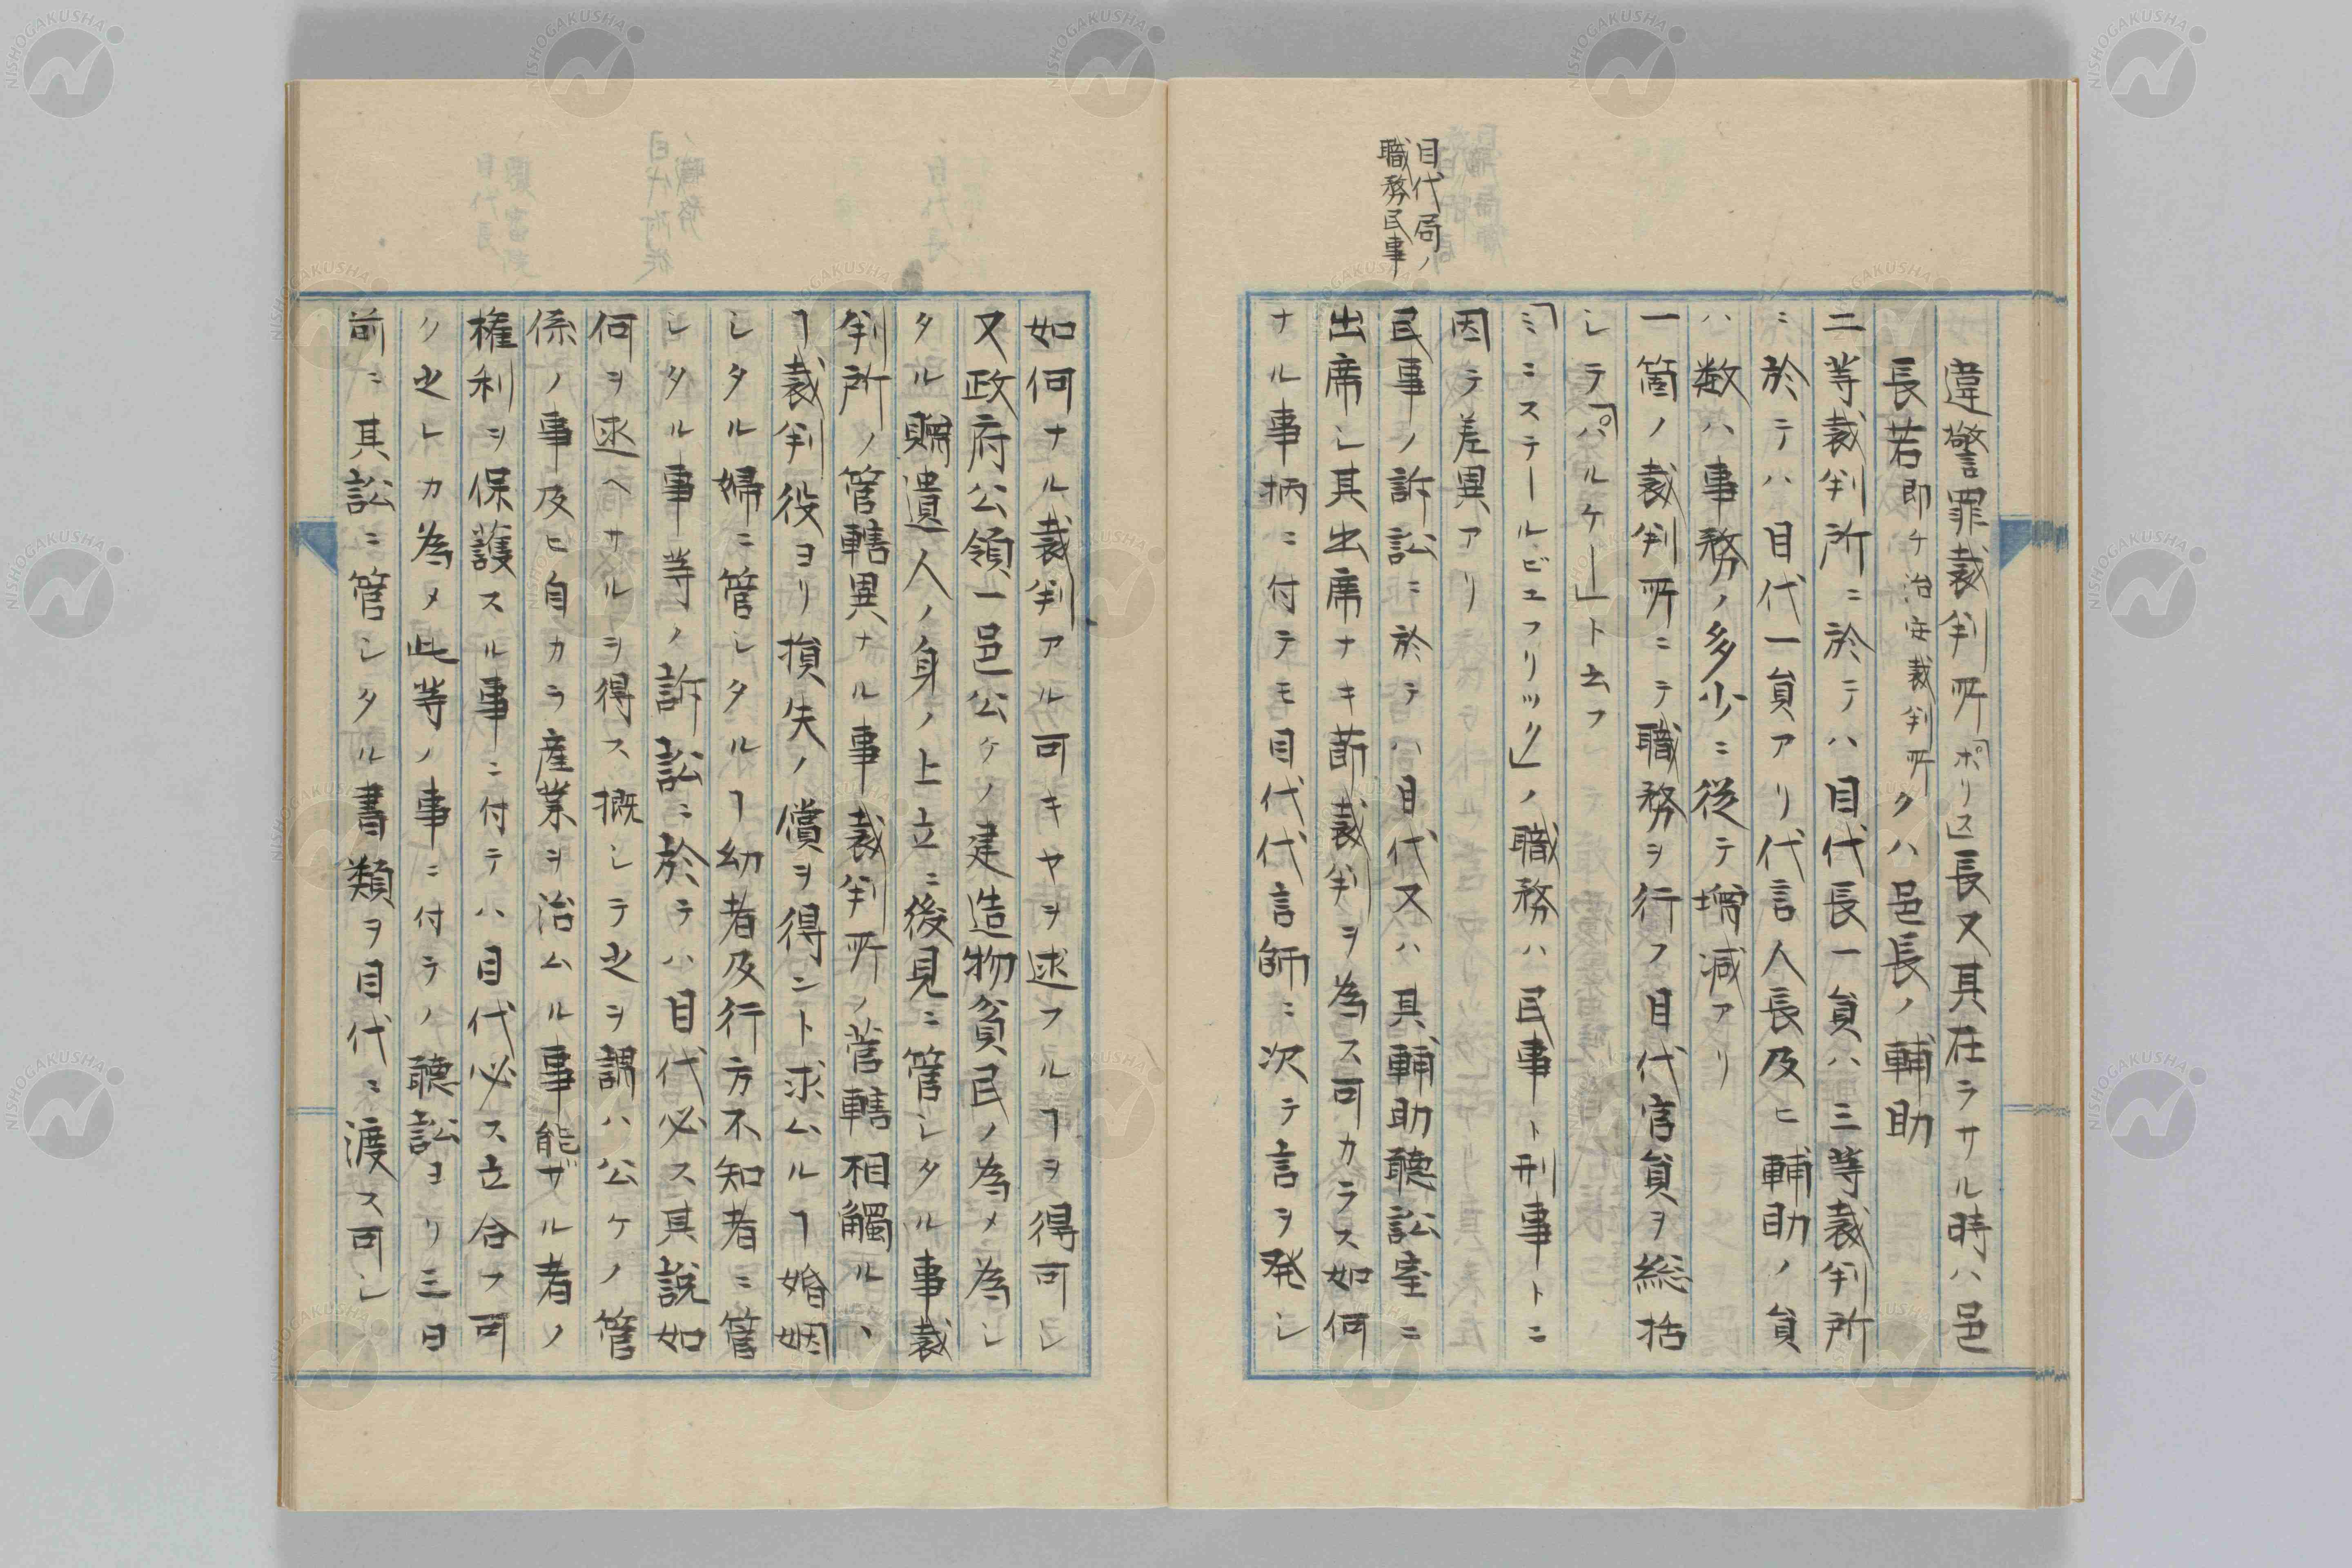 違警罪裁判所「ポリス」長又其在ラサル時ハ邑
長若即ケ治安裁判所クハ邑長ノ輔助
二等裁判所ニ於テハ目代長一員ハ三等裁判所
ニ於テハ目代一員アリ代言人長及ヒ輔助ノ員
ハ数ハ事務ノ多少ニ従テ増減アリ
一箇ノ裁判所ニテ職務ヲ行フ目代官員ヲ総括
シテ「パルケー」ト云フ
「ミニステールピユフリック」ノ職務ハ民事ト刑事トニ
因テ差異アリ
目代局ノ
職務民事
民事ノ訴訟ニ於テハ目代又ハ其輔助聴訟室ニ
出席シ其出席ナキ節裁判ヲ為ス可カラス如何
ナル事柄ニ付テモ目代代言師ニ次テ言ヲ発シ
如何ナル裁判アル可キヤヲ述フルヿヲ得可シ
又政府公領一邑公ケノ建造物貧民ノ為メ為シ
タル贈遺人ノ身ノ上立ニ後見ニ管シタル事裁
判所ノ管轄異ナル事裁判所ノ管轄相觸ルヽ
ヿ裁判役ヨリ損失ノ償ヲ得ント求ムルヿ婚姻
シタル婦ニ管シタルヿ幼者及行方不知者ニ管
シタル事等ノ訴訟ニ於テハ目代必ス其説如
何ヲ述ヘサルヲ得ス概シテ之ヲ謂ハ公ケノ管
係ノ事及ヒ自カラ産業ヲ治ムル事能ザル者ノ
権利ヲ保護スル事ニ付テハ目代必ス立合フ可
ク之レカ為メ此等ノ事ニ付テノ聴訟ヨリ三日
前ニ其訟ニ管シタル書類ヲ目代ニ渡ス可シ
NISHOGAKUSHA